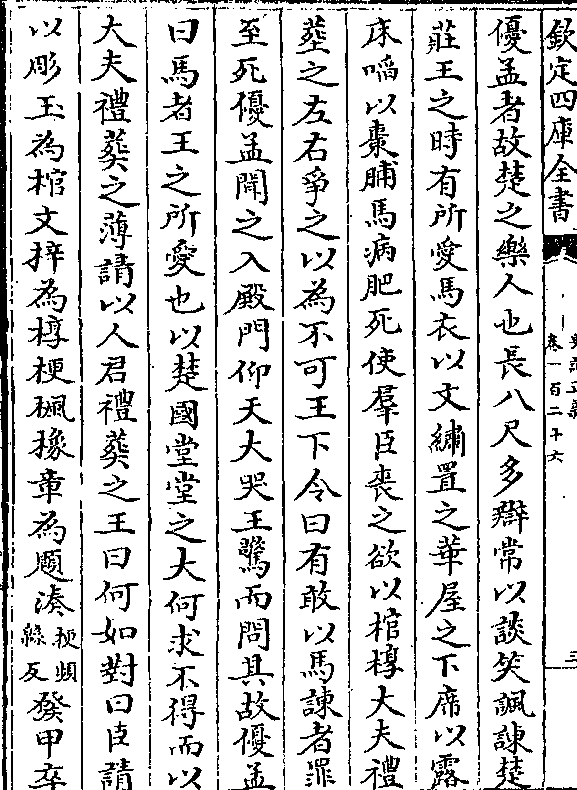 欽定四庫全書
卷一百二十六
優孟者故楚之樂人也長八尺多辯常以談笑諷諫楚
莊王之時有所愛馬衣以文繡置之華屋之下席以露
床啗以棗脯馬病肥死使羣臣喪之欲以棺椁大夫禮
塟之左右爭之以為不可王下令曰有敢以馬諫者罪
至死優孟聞之入殿門仰天大哭王驚而問其故優孟
曰馬者王之所愛也以楚國堂堂之大何求不得而以
大夫禮葬之薄請以人君禮葬之王曰何如對曰臣請
以彫玉為棺文梓為椁楩楓橡章為題湊楩頻綿反發甲卒